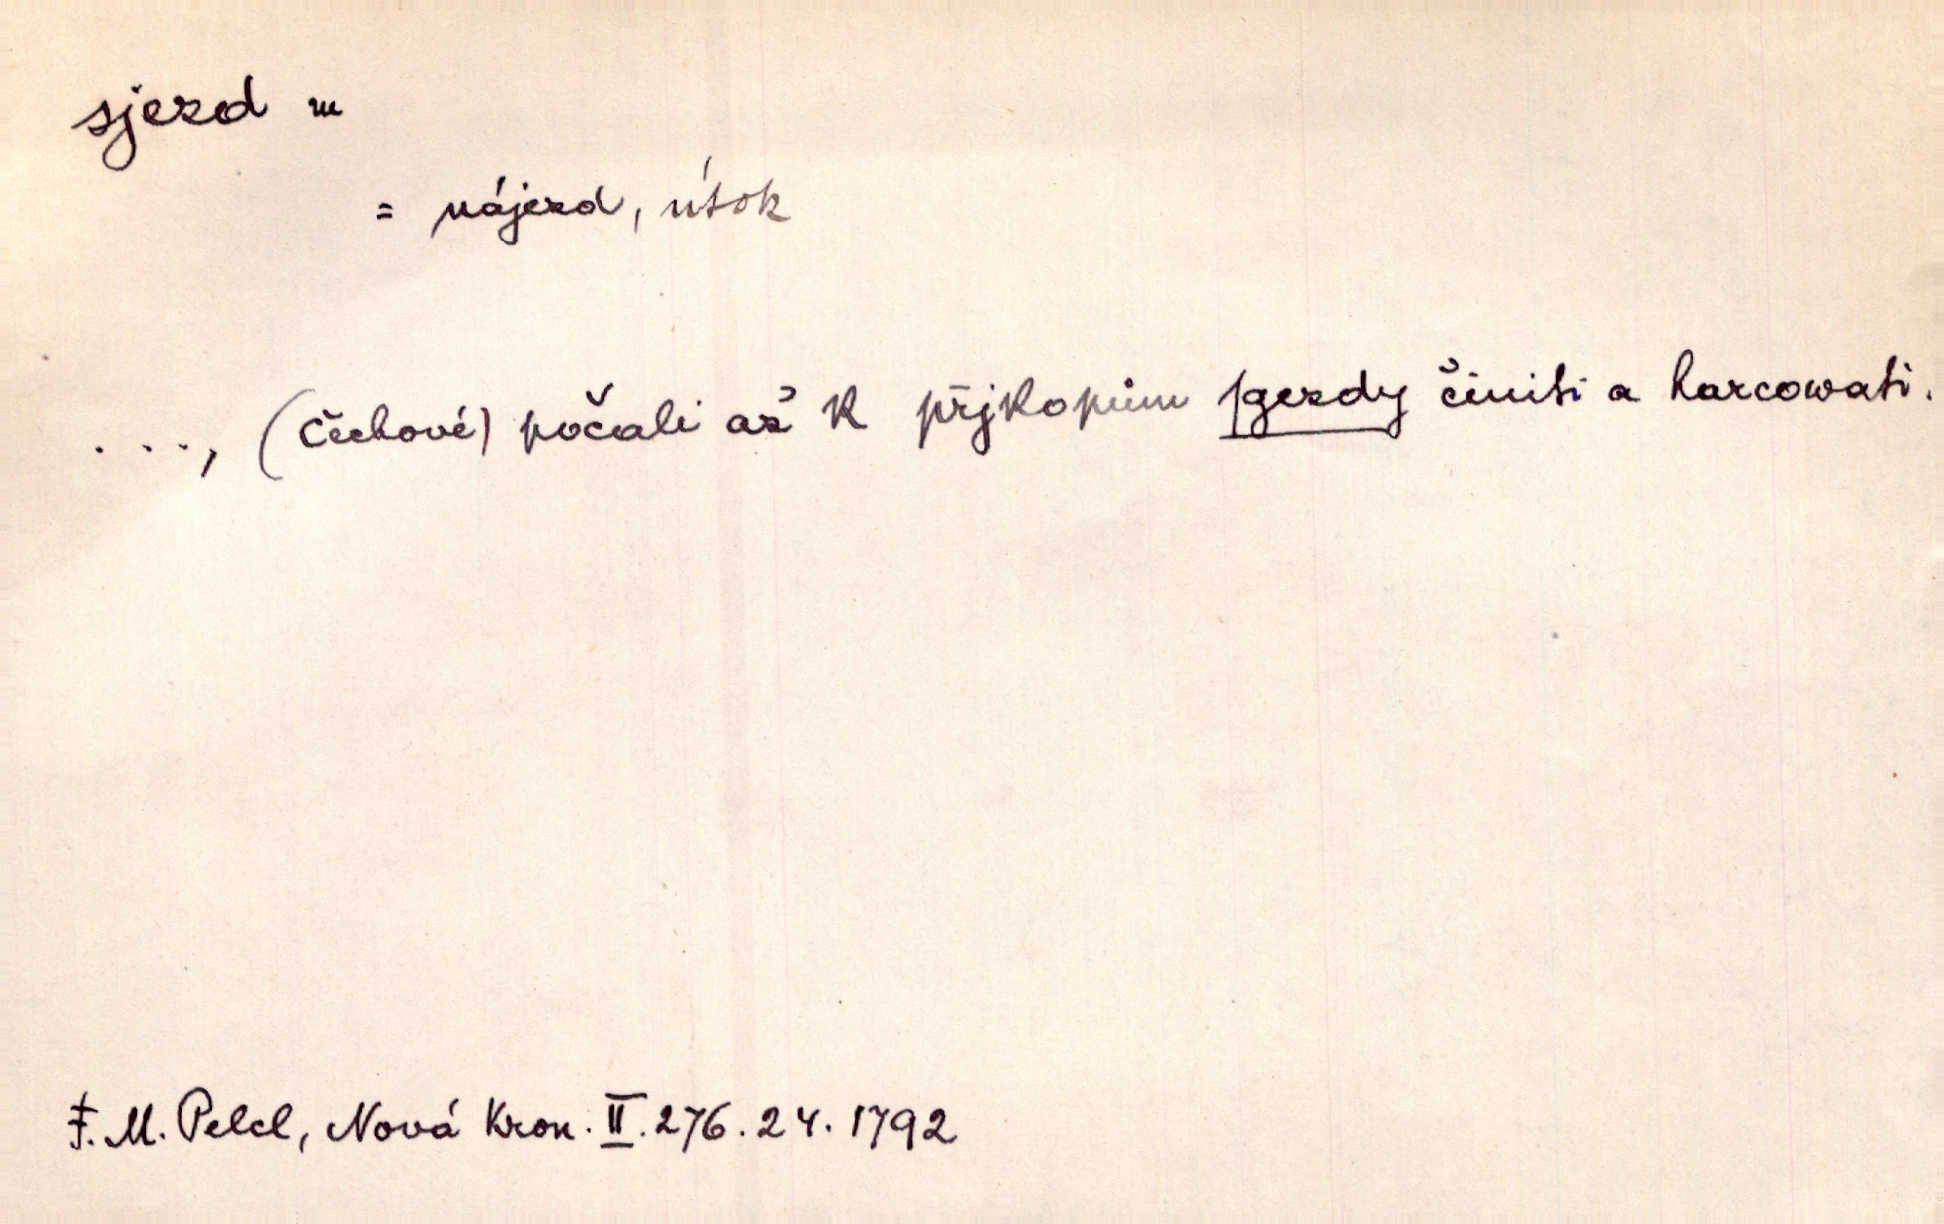 sjezd m
= nájezd, útok
. . ., (Čechové) počali až k přjkopům ſgezdy činiti a harcowati.
F. M. Pelcl, Nová Kron. II. 276. 24. 1792